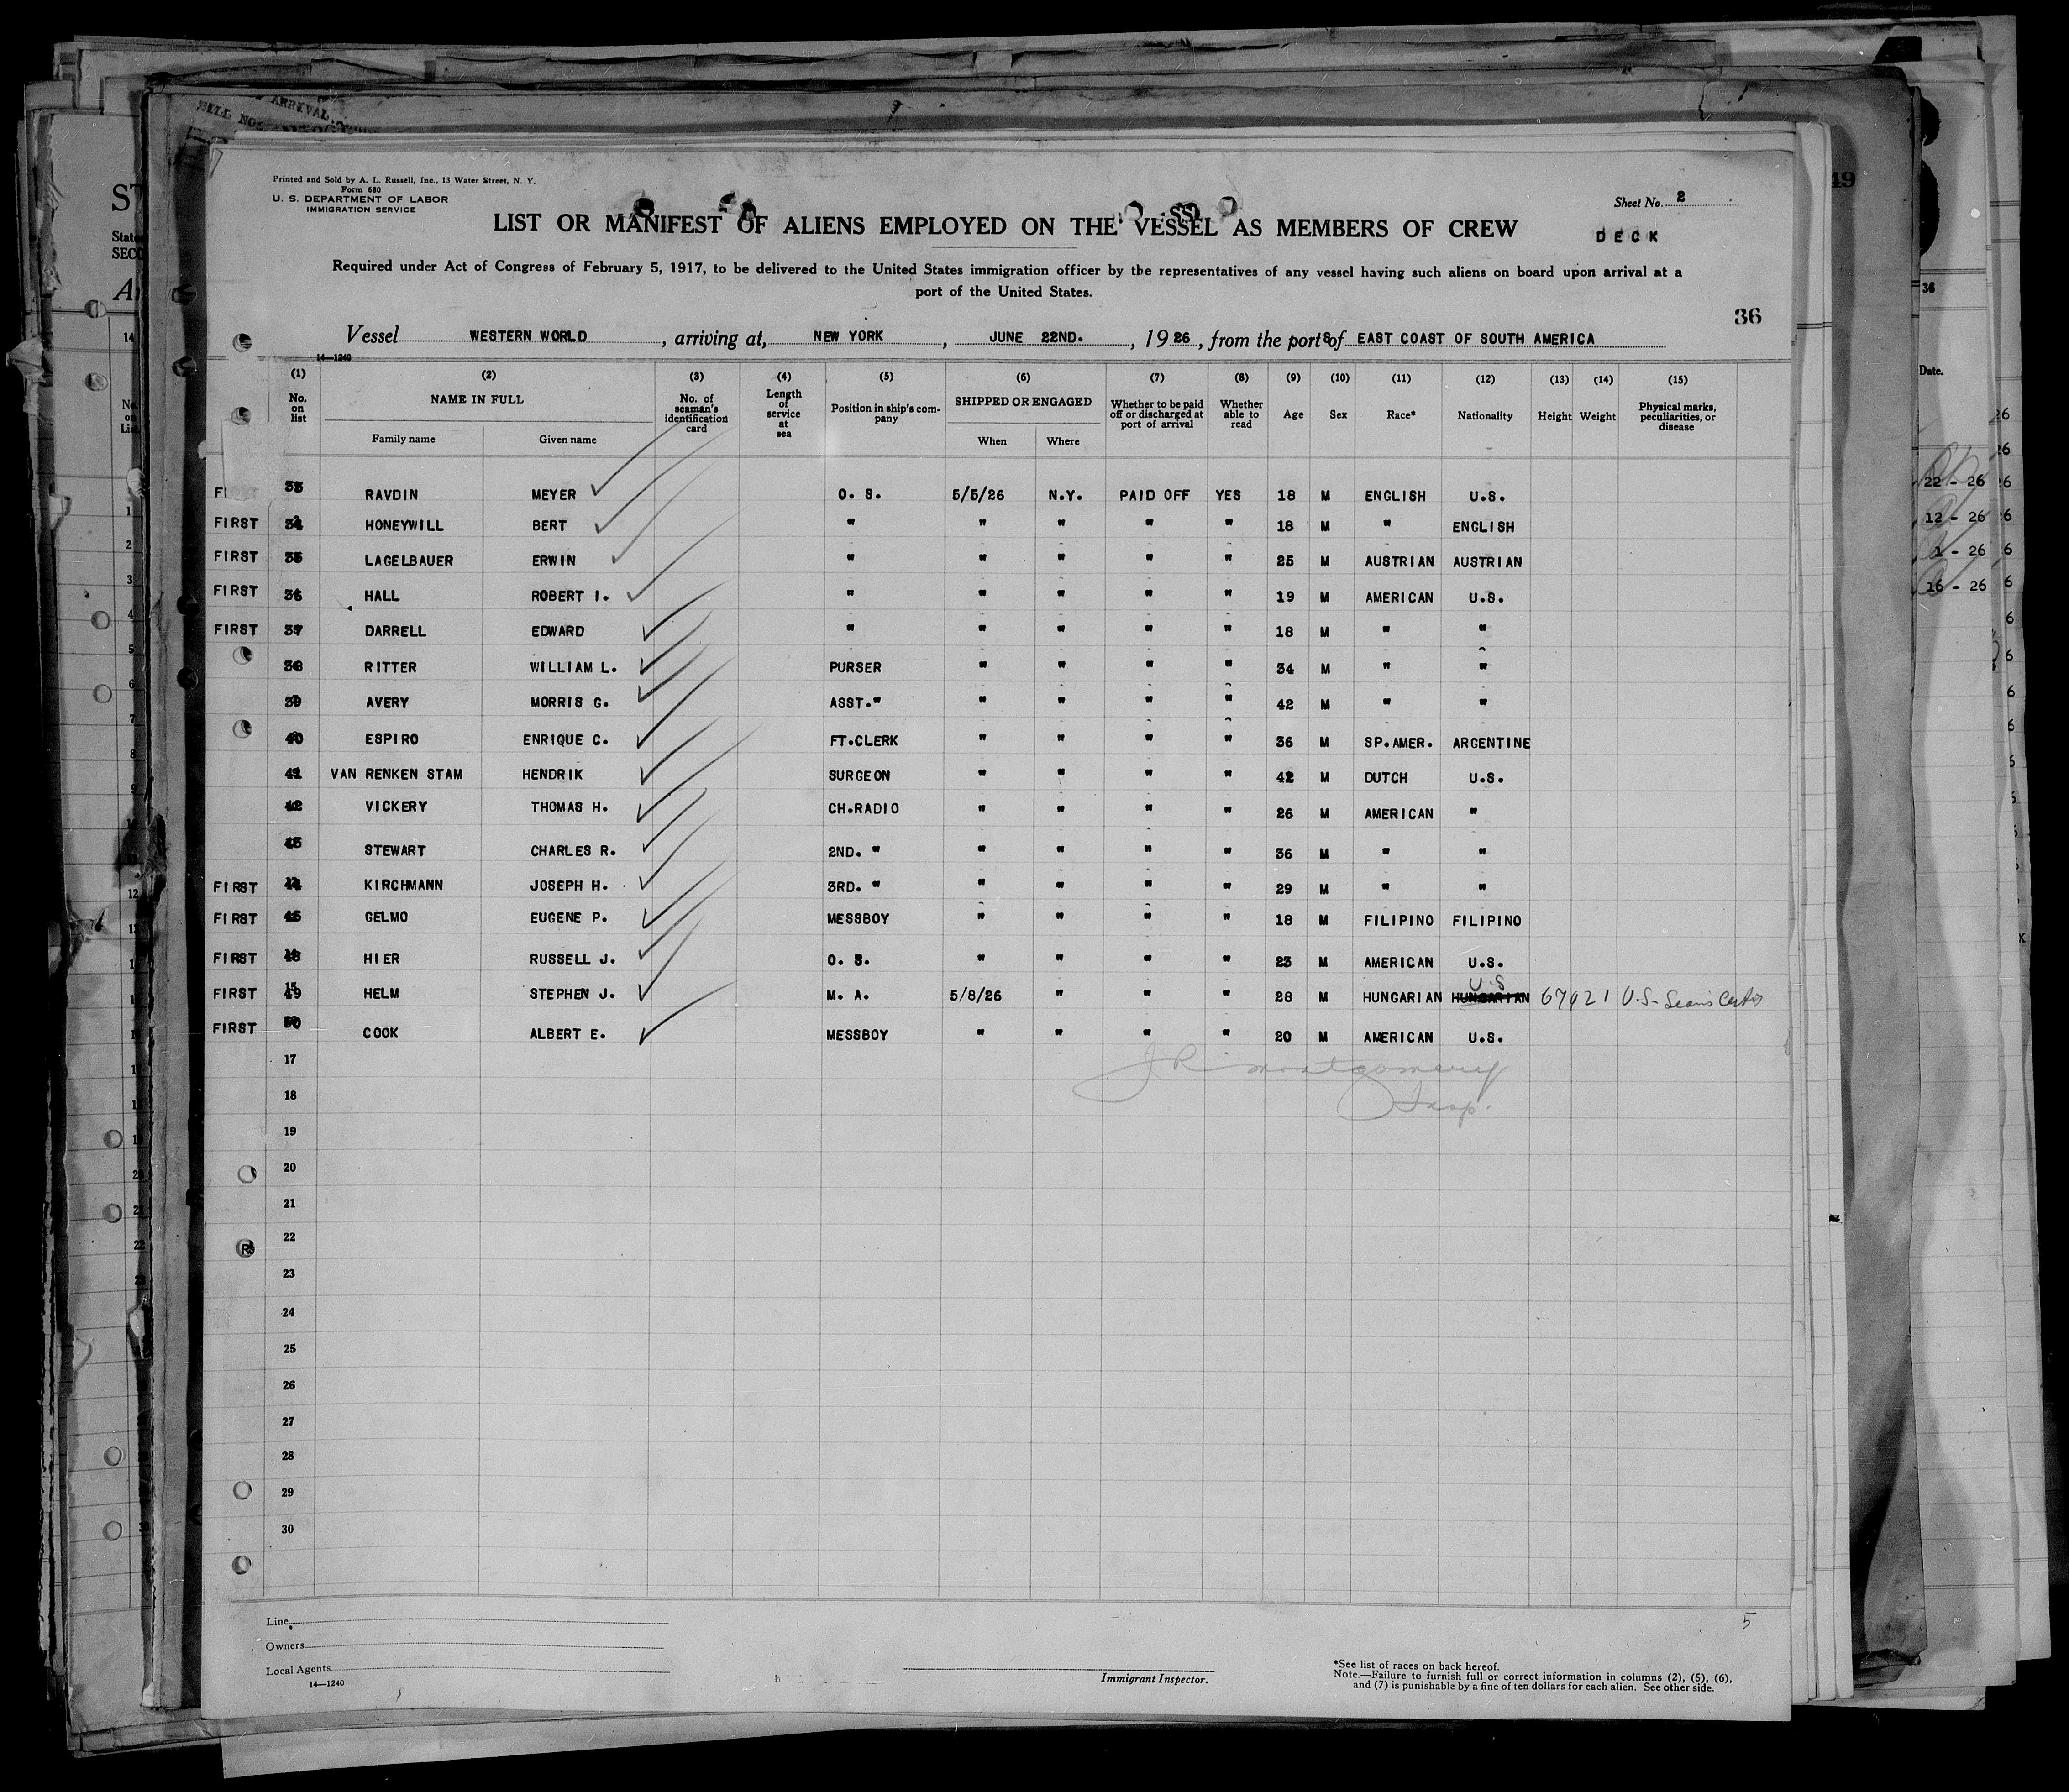 Printed and Sold by A. L. Russell, Inc., 13 Water Street, N. Y.
Form 680
U. S. DEPARTMENT OF LABOR
IMMIGRATION SERVICE
Sheet No. 2
LIST OR MANIFEST OF ALIENS EMPLOYED ON THE VESSEL AS MEMBERS OF CREW
DECK
Required under Act of Congress of February 5, 1917, to be delivered to the United States immigration officer by the representatives of any vessel having such aliens on board upon arrival at a
port of the United States.
36
Vessel WESTERN WORLD, arriving at, NEW YORK, JUNE 22ND., 1926, from the ports of EAST COAST OF SOUTH AMERICA
14—1240
(1) (2) (3) (4) (5) (6) (7) (8) (9) (10) (11) (12) (13) (14) (15)
No. on list NAME IN FULL No. of seaman's identification card Length of service at sea Position in ship's company SHIPPED OR ENGAGED Whether to be paid off or discharged at port of arrival Whether able to read Age Sex Race* Nationality Height Weight Physical marks, peculiarities, or disease
Family name Given name When Where
33 RAVDIN MEYER O. S. 5/5/26 N.Y. PAID OFF YES 18 M ENGLISH U.S.
FIRST 34 HONEYWILL BERT " " " " " 18 M " ENGLISH
FIRST 35 LAGELBAUER ERWIN " " " " " 25 M AUSTRIAN AUSTRIAN
FIRST 36 HALL ROBERT I. " " " " " 19 M AMERICAN U.S.
FIRST 37 DARRELL EDWARD " " " " " 18 M " "
38 RITTER WILLIAM L. PURSER " " " " 34 M " "
39 AVERY MORRIS G. ASST." " " " " 42 M " "
40 ESPIRO ENRIQUE C. FT.CLERK " " " " 36 M SP.AMER. ARGENTINE
41 VAN RENKEN STAM HENDRIK SURGEON " " " " 42 M DUTCH U.S.
42 VICKERY THOMAS H. CH.RADIO " " " " 26 M AMERICAN "
43 STEWART CHARLES R. 2ND. " " " " " 36 M " "
FIRST 44 KIRCHMANN JOSEPH H. 3RD. " " " " " 29 M " "
FIRST 45 GELMO EUGENE P. MESSBOY " " " " 18 M FILIPINO FILIPINO
FIRST 48 HIER RUSSELL J. O. S. " " " " 23 M AMERICAN U.S.
U.S
FIRST 49 HELM STEPHEN J. M. A. 5/8/26 " " " 28 M HUNGARIAN HUNGARIAN 67421 U.S.
FIRST 50 COOK ALBERT E. MESSBOY " " " " 20 M AMERICAN U.S.
17
J R Montgomery
18
Insp.
19
20
21
22
23
24
25
26
27
28
29
30
Line
5
Owners
Local Agents
14—1240
Immigrant Inspector.
*See list of races on back hereof.
Note.—Failure to furnish full or correct information in columns (2), (5), (6),
and (7) is punishable by a fine of ten dollars for each alien. See other side.
36
Date.
22 - 26
12 - 26
1 - 26
16 - 26